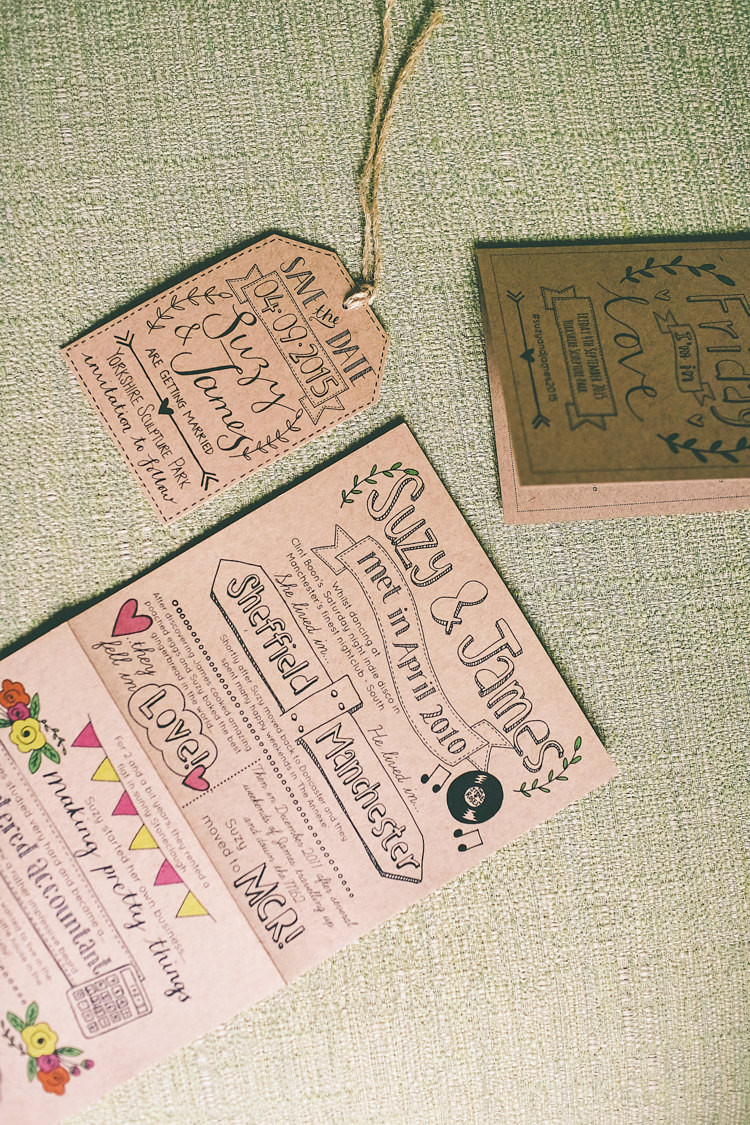 SAVE the DATE
04·09·2015
Suzy
& James
ARE GETTING MARRIED
YORKSHIRE SCULPTURE PARK
invitation to follow
Friday
I'm in
love
FRIDAY 4TH SEPTEMBER 2015
YORKSHIRE SCULPTURE PARK
#suzyandjames2015
Suzy & James
met in April 2010
Whilst dancing at
Clint Boon's Saturday night indie disco in
Manchester's finest nightclub - South
She lived in...
He lived in...
Sheffield
Manchester
Shortly after Suzy moved back to Doncaster and they
spent many happy weekends in The Pennines
After discovering James cooked amazing
poached eggs and Suzy baked the best
gingerbread in the world
they
fell in
LOVE!
Then in December 2011 after several
weekends of James travelling up
and down the M62
Suzy
moved to
MCR!
For 2 and a bit years, they rented a
flat in sunny Stoneclough
Suzy started her own business...
making pretty things
studied very hard and became a...
accountant